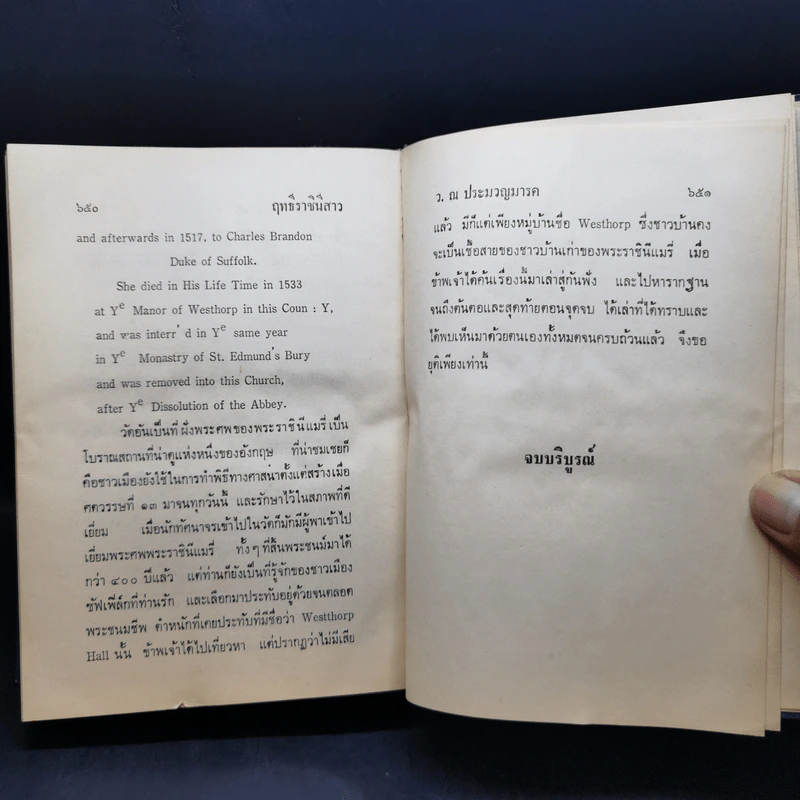 ๖๕๐ ฤทธิ์ราชินีสาว
and afterwards in 1517, to Charles Brandon
Duke of Suffolk.
She died in His Life Time in 1533
at Ye Manor of Westhorp in this Coun : Y,
and was interr' d in Ye same year
in Ye Monastry of St. Edmund's Bury
and was removed into this Church,
after Ye Dissolution of the Abbey.
วัดอันเป็นที่ฝังพระศพของพระราชินีแมรี่เป็น
โบราณสถานที่น่าดูแห่งหนึ่งของอังกฤษ ที่น่าชมเชยก็
คือชาวเมืองยังใช้ในการทำพิธีทางศาสนาตั้งแต่สร้างเมื่อ
ศตวรรษที่ ๑๓ มาจนทุกวันนี้ และรักษาไว้ในสภาพที่ดี
เยี่ยม เมื่อนักทัศนาจรเข้าไปในวัดก็มักมีผู้พาเข้าไป
เยี่ยมพระศพพระราชินีแมรี่ ทั้งๆ ที่สิ้นพระชนม์มาได้
กว่า ๔๐๐ ปีแล้ว แต่ท่านก็ยังเป็นที่รู้จักของชาวเมือง
ซัฟเฟิล์กที่ท่านรัก และเลือกมาประทับอยู่ด้วยจนตลอด
พระชนมชีพ ตำหนักที่เคยประทับที่มีชื่อว่า Westthorp
Hall นั้น ข้าพเจ้าได้ไปเที่ยวหา แต่ปรากฏว่าไม่มีเสีย
ว. ณ ประมวญมารค ๖๕๑
แล้ว มีก็แต่เพียงหมู่บ้านชื่อ Westhorp ซึ่งชาวบ้านคง
จะเป็นเชื้อสายของชาวบ้านเก่าของพระราชินีแมรี่ เมื่อ
ข้าพเจ้าได้ค้นเรื่องนี้มาเล่าสู่กันฟัง และไปหารากฐาน
จนถึงต้นตอและสุดท้ายตอนจุดจบ ได้เล่าที่ได้ทราบและ
ได้พบเห็นมาด้วยตนเองทั้งหมดจนครบถ้วนแล้ว จึงขอ
ยุติเพียงเท่านี้
จบบริบูรณ์